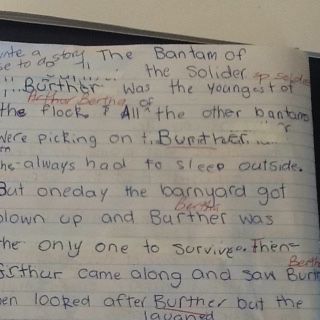 a story The Bantam of
the Solider sp soldier
Burther was the youngest of
Arthur Bertha
the flock & All of the other bantams
were picking on
he always had to sleep outside.
But oneday the barnyard got
blown up and Burther was
Bertha
the only one to survive. Then
came along and saw
looked after Burther but the